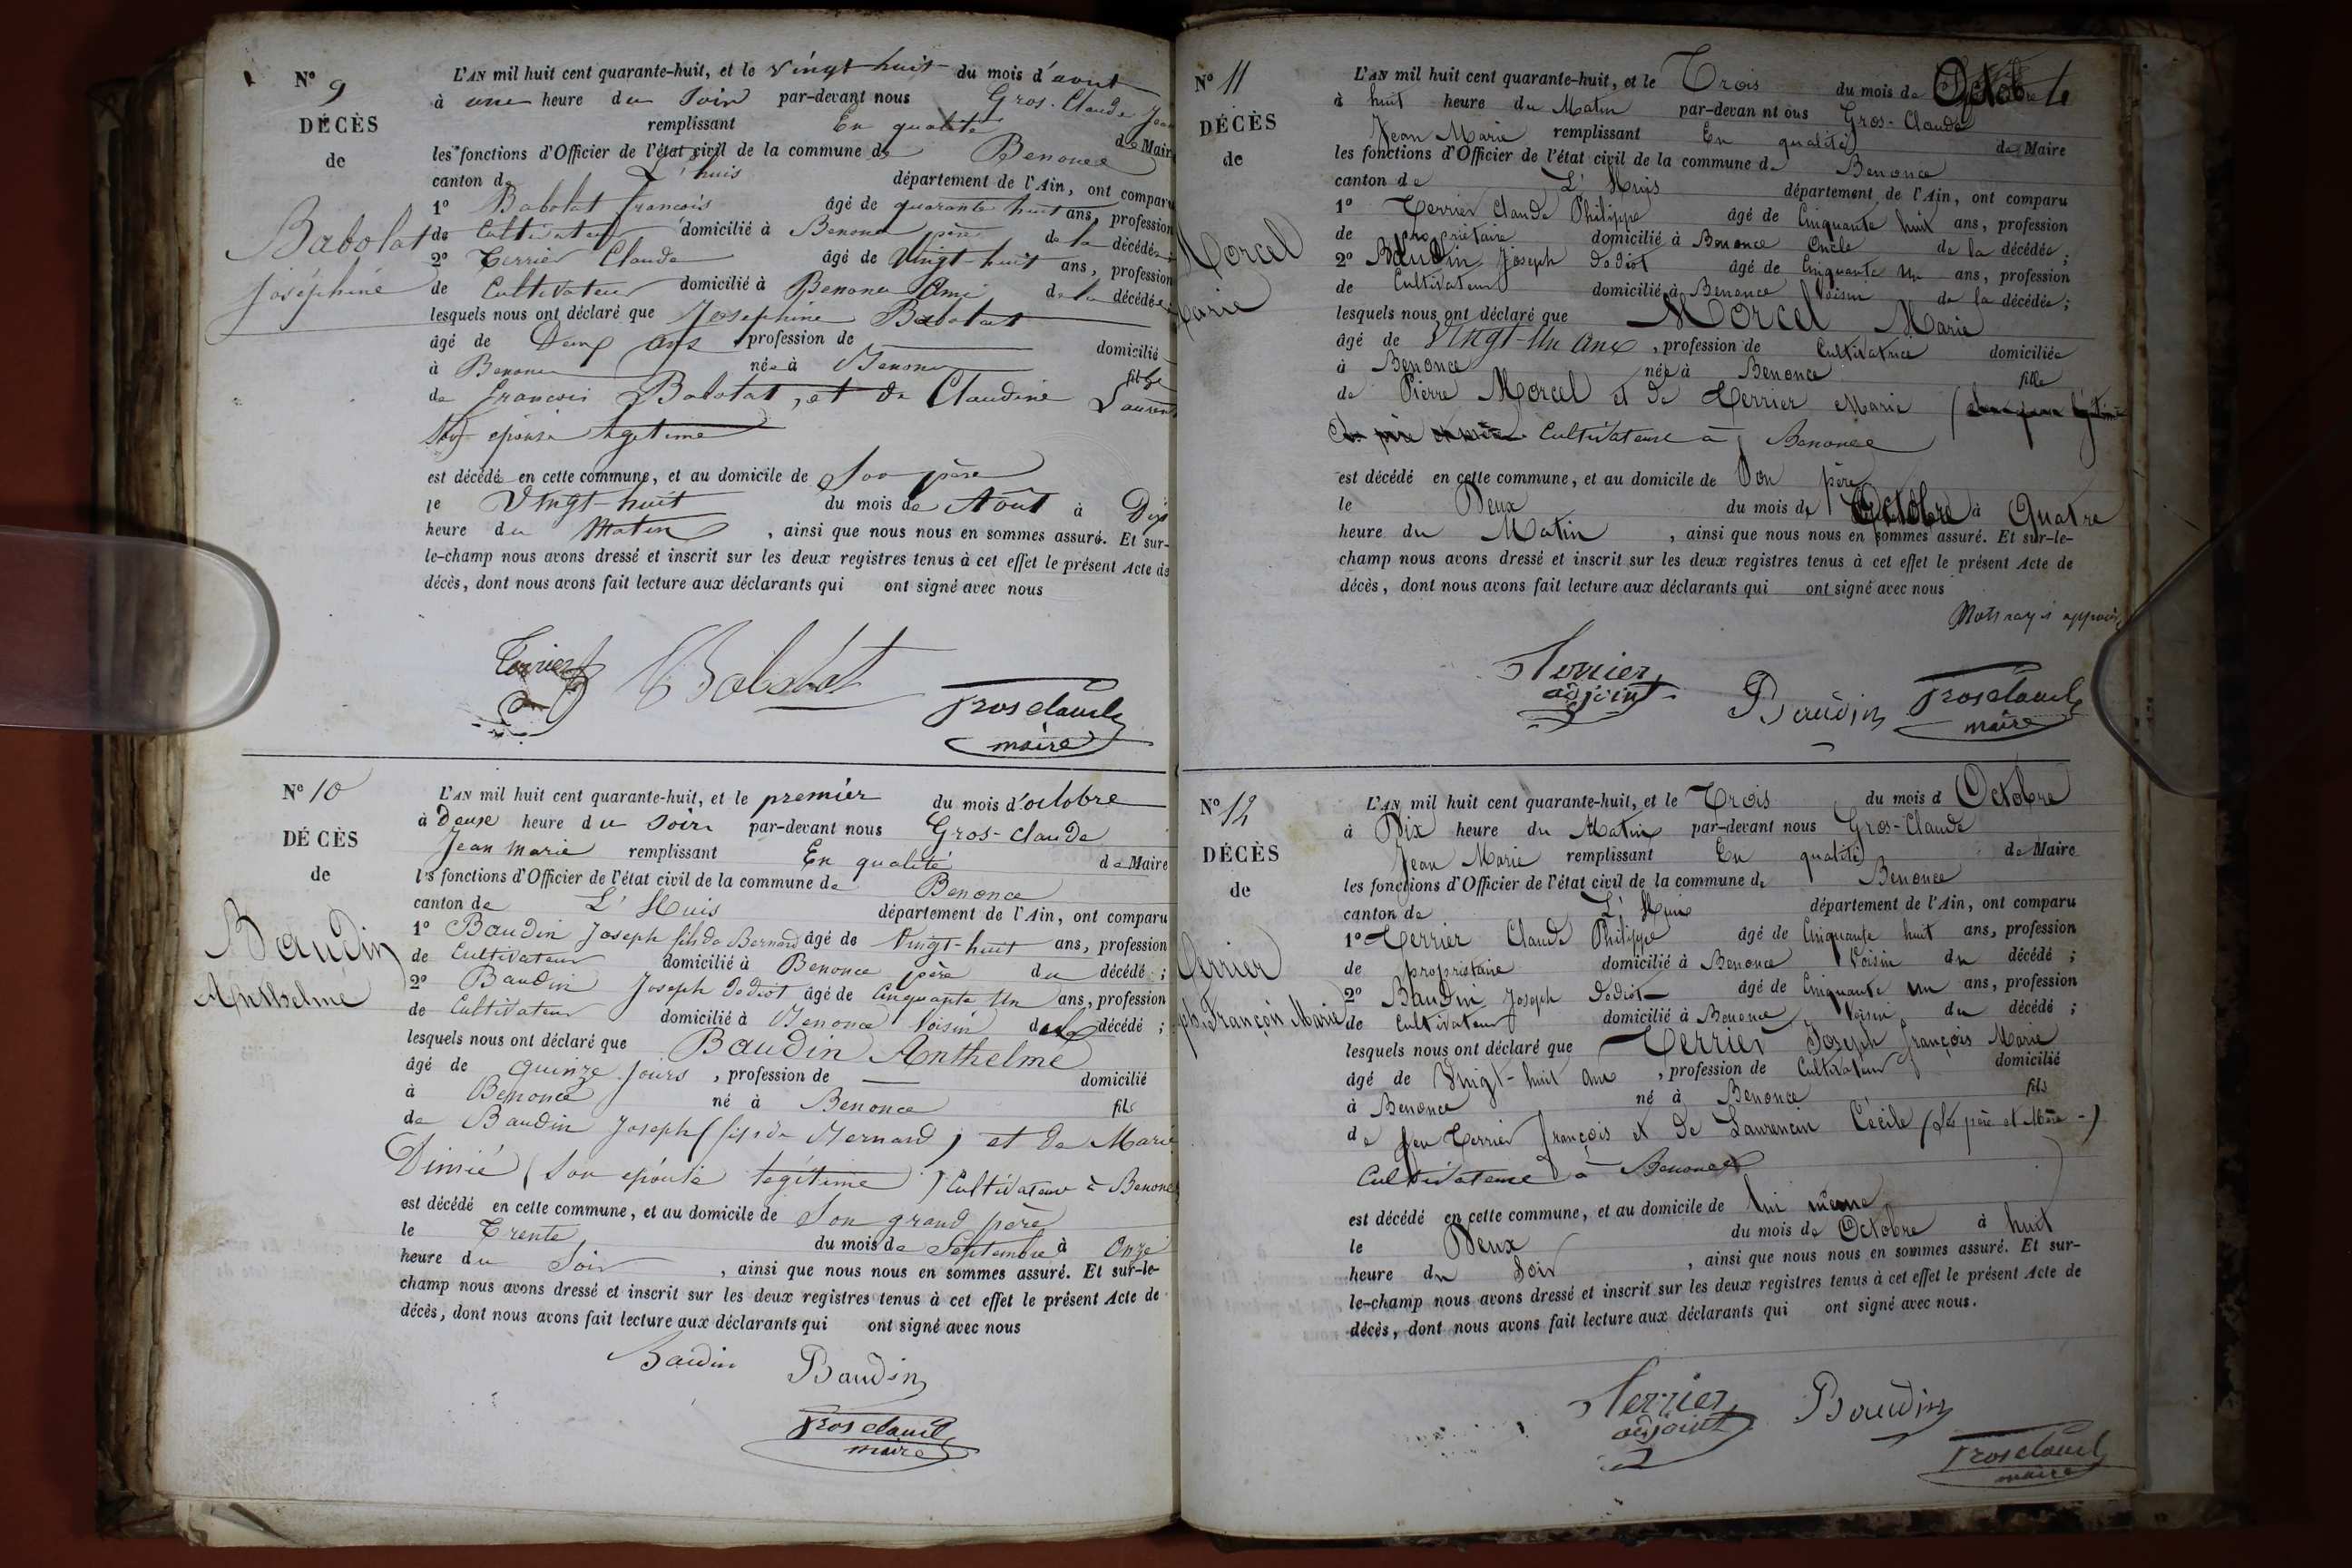 N° 9
DÉCÈS
de
Babolat
Joséphine
L'AN mil huit cent quarante-huit, et le vingt huit du mois d'aout
à une heure du Soir par-devant nous Gros-Claude Jean
remplissant En qualité de Maire
les fonctions d'Officier de l'état civil de la commune de Benonce
canton de L'huis département de l'Ain, ont comparu
1° Babolat françois âgé de quarante huit ans, profession
de Cultivateur domicilié à Benonce père de la décédée
2° Terrier Claude âgé de Vingt-huit ans, profession
de Cultivateur domicilié à Benonce Ami de la décédée
lesquels nous ont déclaré que Joséphine Babolat
âgé de Deux ans profession de domicilié
à Benonce née à Benonce fille
de francois Babolat, et de Claudine Laurent
Son épouse légitime
est décédée en cette commune, et au domicile de Son père
le Vingt-huit du mois de Août à Dix
heure du Matin , ainsi que nous nous en sommes assuré. Et sur-
le-champ nous avons dressé et inscrit sur les deux registres tenus à cet effet le présent Acte de
décès, dont nous avons fait lecture aux déclarants qui ont signé avec nous
Terrier Babolat Grosclaude
maire
N° 10
DÉCÈS
de
Baudin
Anthelme
L'AN mil huit cent quarante-huit, et le premier du mois d'octobre
à Deuxe heure du Soir par-devant nous Gros-claude
Jean Marie remplissant En qualité de Maire
les fonctions d'Officier de l'état civil de la commune de Benonce
canton de L'Huis département de l'Ain, ont comparu
1° Baudin Joseph fils de Bernard âgé de Vingt-huit ans, profession
de Cultivateur domicilié à Benonce père du décédé ;
2° Baudin Joseph dodiot âgé de Cinquante Un ans, profession
de Cultivateur domicilié à Benonce Voisin décédé ;
lesquels nous ont déclaré que Baudin Anthelme
âgé de Quinze Jours , profession de domicilié
à Benonce né à Benonce fils
de Baudin Joseph (fils de Bernard) et de Marie
Dimié (Son épouse légitime) Cultivateur à Benonce
est décédé en cette commune, et au domicile de Son grand père
le Trente du mois de Septembre à Onze
heure du Soir , ainsi que nous nous en sommes assuré. Et sur-le-
champ nous avons dressé et inscrit sur les deux registres tenus à cet effet le présent Acte de
décès, dont nous avons fait lecture aux déclarants qui ont signé avec nous
Baudin Baudin
Grosclaude
maire
N° 11
DÉCÈS
de
Morcel
Marie
L'AN mil huit cent quarante-huit, et le Trois du mois de Octobre
à huit heure du Matin par-devan nt ous Gros-Claude
Jean Marie remplissant En qualité de Maire
les fonctions d'Officier de l'état civil de la commune de Benonce
canton de L'Huis département de l'Ain, ont comparu
1° Terrier Claude Philippe âgé de Cinquante huit ans, profession
de propriétaire domicilié à Benonce Oncle de la décédée ;
2° Baudin Joseph dodiot âgé de Cinquante Un ans, profession
de Cultivateur domicilié à Benonce Voisin de la décédée ;
lesquels nous ont déclaré que Morcel Marie
âgé de Vingt-Un Ans , profession de Cultivatrice domiciliée
à Benonce née à Benonce fille
de Pierre Morcel et de Terrier Marie
Cultivateure à Benonce
est décédé en cette commune, et au domicile de Son père
le Deux du mois de Octobre à Quatre
heure du Matin , ainsi que nous nous en sommes assuré. Et sur-le-
champ nous avons dressé et inscrit sur les deux registres tenus à cet effet le présent Acte de
décès, dont nous avons fait lecture aux déclarants qui ont signé avec nous
Mots rayés
Terrier
adjoint Baudin Grosclaude
maire
N° 12
DÉCÈS
de
Terrier
ph François Marie
L'AN mil huit cent quarante-huit, et le Trois du mois d Octobre
à Dix heure du Matin par-devant nous Gros-Claude
Jean Marie remplissant En qualité de Maire
les fonctions d'Officier de l'état civil de la commune de Benonce
canton de L'Huis département de l'Ain, ont comparu
1° Terrier Claude Philippe âgé de Cinquante huit ans, profession
de propriétaire domicilié à Benonce Voisin du décédé ;
2° Baudin Joseph dodiot âgé de Cinquante un ans, profession
de Cultivateur domicilié à Benonce Voisin du décédé ;
lesquels nous ont déclaré que Terrier Joseph François Marie
âgé de Vingt-huit Ans , profession de Cultivateur domicilié
à Benonce né à Benonce fils
de feu Terrier François et de Laurencin Cécile (Les père et Mère -)
Cultivateure à Benonce
est décédé en cette commune, et au domicile de lui même
le Deux du mois de Octobre à huit
heure du Soir , ainsi que nous nous en sommes assuré. Et sur-
le-champ nous avons dressé et inscrit sur les deux registres tenus à cet effet le présent Acte de
décès, dont nous avons fait lecture aux déclarants qui ont signé avec nous.
Terrier
adjoint Baudin
Grosclaude
maire